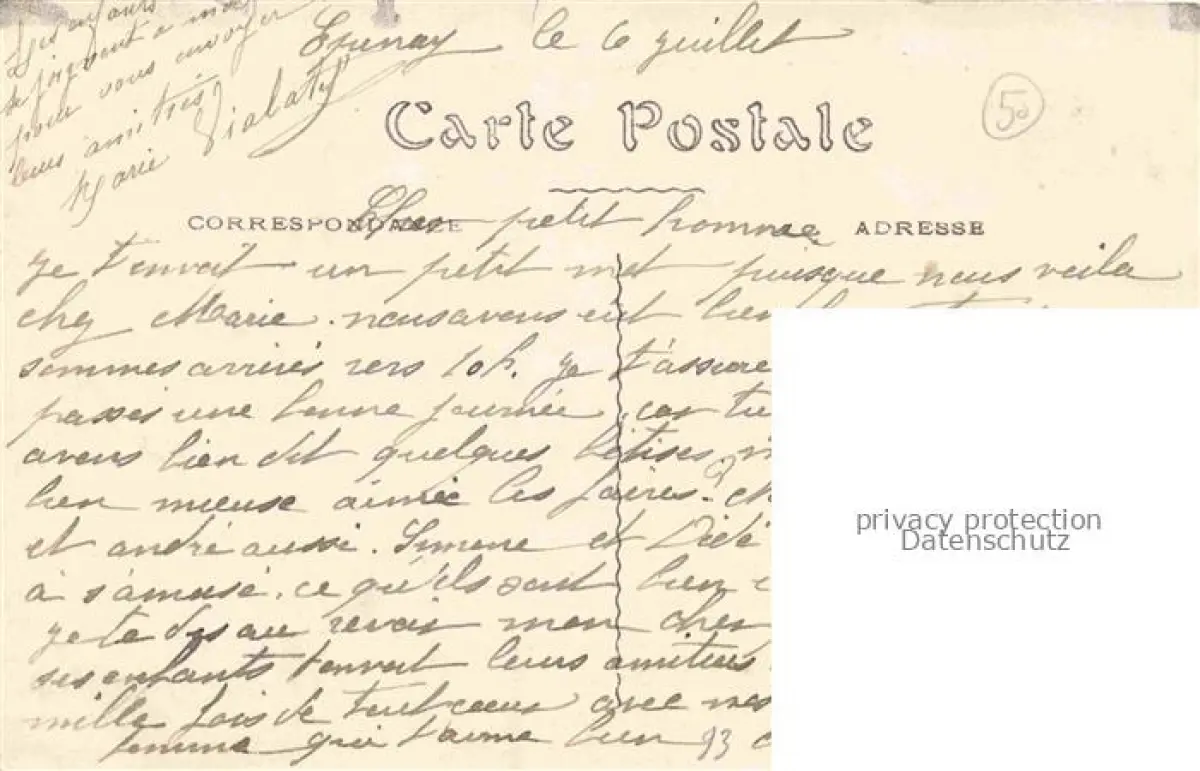 Epinay le 6 juillet
se joignent a moi
pour vous envoyer
leurs amitiés
Marie Vialatte
Carte Postale
50
CORRESPONDANCE
ADRESSE
Cher petit homme
je t'envoit un petit mot puisque nous voila
chez Marie. nous avons eut bien
sommes arrivés vers 10h. je t'assure
passés une bonne journée, car tu
avons bien dit quelques bêtises
bien mieuse aimée les faires.
et andré aussi. Simone et Dédé
à s'amusé. ce qu'ils sont bien
je te dis au revoir mon cher
ses enfants t'envoit leurs amitiés
mille fois de tout cœur avec nos
femme qui t'aime bien 93
privacy protection
Datenschutz